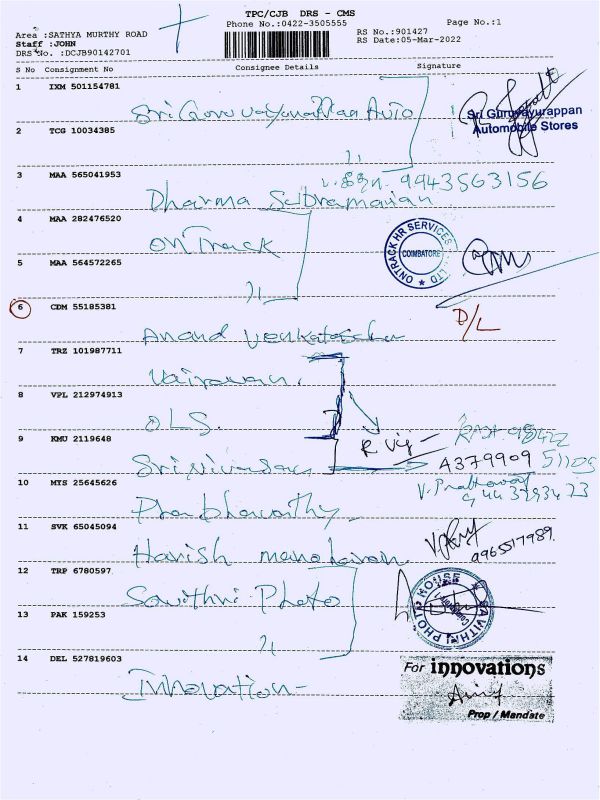 TPC/CJB DRS - CMS
Phone No.:0422-3505555
Page No.:1
Area :SATHYA MURTHY ROAD
RS No.:901427
Staff :JOHN
RS Date:05-Mar-2022
DRS No. :DCJB90142701
S No Consignment No Consignee Details Signature
1 IXM 501154781
Sri Guruvayurappan Auto
Sri Guruvayurappan
Automobile Stores
2 TCG 10034385
11
3 MAA 565041953
9943563156
Dharma Subramanian
4 MAA 282476520
OnTrack
ONTRACK HR SERVICES LTD
COIMBATORE
5 MAA 564572265
11
6 CDM 55185381
D/L
Anand Venkatesh
7 TRZ 101987711
Vairavan.
8 VPL 212974913
OLS.
R Vij
9 KMU 2119648
Srinivasan
A379909
10 MTS 25645626
V. Prabhavathy
Prabhavathy
11 SVK 65045094
9965517989
Harish manoharan
12 TRP 6780597
Savithri Photo
SAVITHRI PHOTO HOUSE
13 PAK 159253
11
14 DEL 527819603
For innovations
Innovation
Prop / Mandate